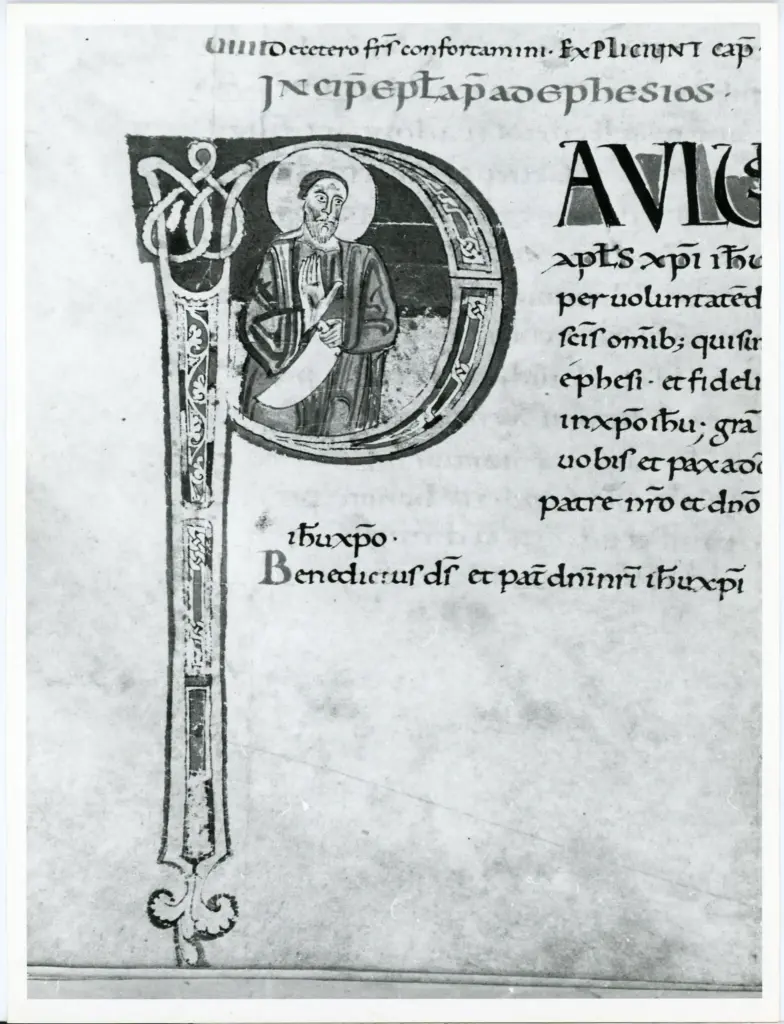 UIIII De cetero fr̄s confortamini· EXPLICIUNT cap̄
INCIP̄ EPL̄ AP̄ AD EPHESIOS·
PAVLUS
apl̄s xp̄i ih̄u
per uoluntatē d
sc̄is om̄ib; qui sun
ephesi· et fideli
in xp̄o ih̄u; gr̄a
uobis et pax a dō
patre nr̄o et dn̄o
ih̄u xp̄o·
Benedictus ds̄ et pat̄ dn̄i nr̄i ih̄u xp̄i